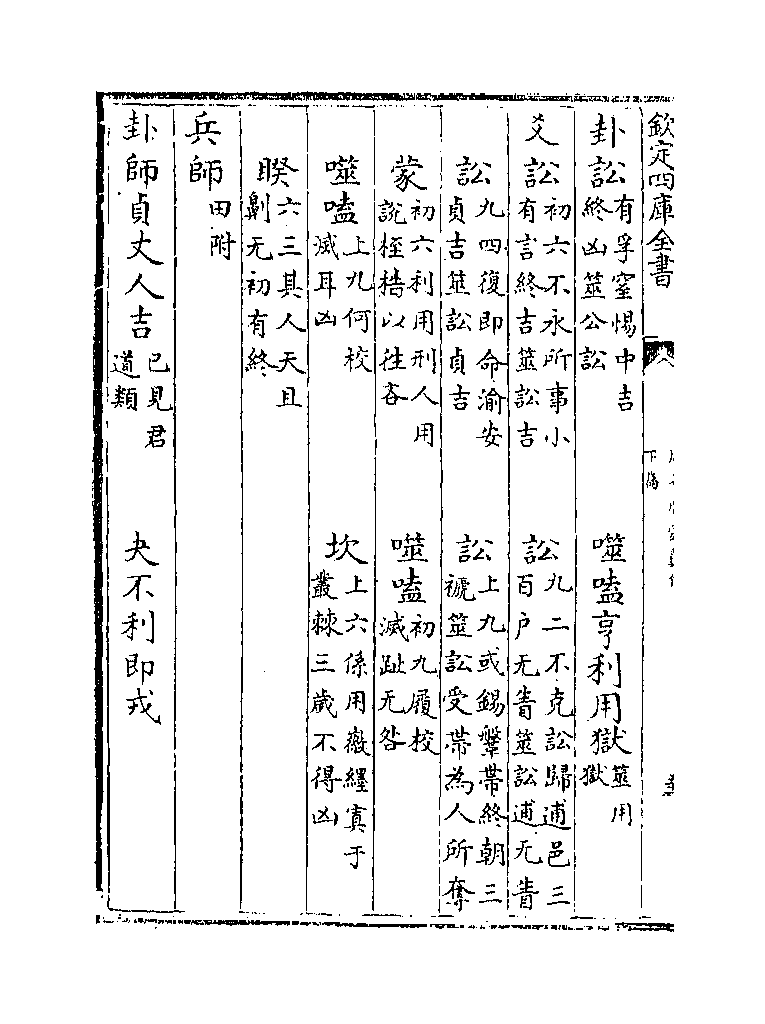 欽定四庫全書
下編
卦訟有孚窒惕中吉終凶筮公訟
噬嗑亨利用獄筮用獄
爻訟初六不永所事小有言終吉筮訟吉
訟九二不克訟歸逋邑三百户无眚筮訟逋无眚
訟九四復即命渝安貞吉筮訟貞吉
訟上九或錫鞶帶終朝三褫筮訟受帶為人所奪
蒙初六利用刑人用說桎梏以往吝
噬嗑初九履校滅趾无咎
噬嗑上九何校滅耳凶
坎上六係用徽纆寘于叢棘三歲不得凶
睽六三其人天且劓无初有終
兵師田附
卦師貞丈人吉已見君道類
夬不利即戎